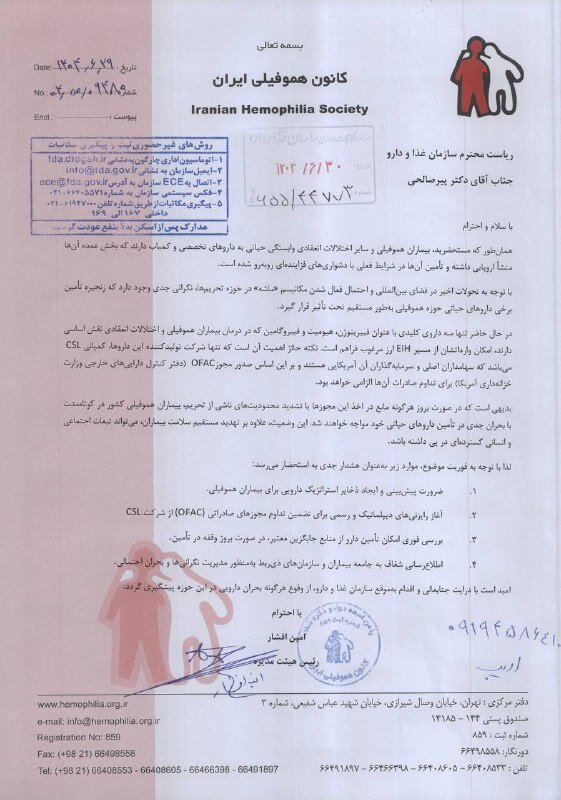 بسمه تعالی
کانون هموفیلی ایران
Iranian Hemophilia Society
تاریخ: Date: ۱۴۰۴،۶،۲۹
شماره: No.
پیوست: Encl.:
روش‌های غیر حضوری ثبت و پیگیری مکاتبات
۱-اتوماسیون اداری چارگون به نشانی fda.didgah.ir
۲-ایمیل سازمان به نشانی info@fda.gov.ir
۳-اتصال به ECE سازمان به آدرس ece@fda.gov.ir
۴-فکس سیستمی سازمان به شماره ۶۶۴۰۵۵۷۱-۰۲۱
۵-پیگیری مکاتبات از طریق شماره تلفن ۶۱۹۲۷۰۰۰-۰۲۱
داخلی ۱۶۷ الی ۱۶۹
مدارک پس از اسکن به ذینفع عودت گردید
۱۴۰۴/۶/۳۰
۶۵۵/۴۴۷۷۳
ریاست محترم سازمان غذا و دارو
جناب آقای دکتر پیرصالحی
با سلام و احترام
همان‌طور که مستحضرید، بیماران هموفیلی و سایر اختلالات انعقادی وابستگی حیاتی به داروهای تخصصی و کمیاب دارند که بخش عمده آن‌ها
منشأ اروپایی داشته و تأمین آن‌ها در شرایط فعلی با دشواری‌های فزاینده‌ای روبه‌رو شده است.
با توجه به تحولات اخیر در فضای بین‌المللی و احتمال فعال شدن مکانیسم «ماشه» در حوزه تحریم‌ها، نگرانی جدی وجود دارد که زنجیره تأمین
برخی داروهای حیاتی حوزه هموفیلی به‌طور مستقیم تحت تأثیر قرار گیرد.
در حال حاضر تنها سه داروی کلیدی با عنوان فیبرینوژن، هیومیت و فیبروگامین که در درمان بیماران هموفیلی و اختلالات انعقادی نقش اساسی
دارند، امکان وارداتشان از مسیر EIH ارز مرغوب فراهم است. نکته حائز اهمیت آن است که تنها شرکت تولیدکننده این داروها، کمپانی CSL
می‌باشد که سهامداران اصلی و سرمایه‌گذاران آن آمریکایی هستند و بر این اساس صدور مجوز OFAC (دفتر کنترل دارایی‌های خارجی وزارت
خزانه‌داری آمریکا) برای تداوم صادرات آن‌ها الزامی خواهد بود.
بدیهی است که در صورت بروز هرگونه مانع در اخذ این مجوزها یا تشدید محدودیت‌های ناشی از تحریم، بیماران هموفیلی کشور در کوتاه‌مدت
با بحران جدی در تأمین داروهای حیاتی خود مواجه خواهند شد. این وضعیت، علاوه بر تهدید مستقیم سلامت بیماران، می‌تواند تبعات اجتماعی
و انسانی گسترده‌ای در پی داشته باشد.
لذا با توجه به فوریت موضوع، موارد زیر به‌عنوان هشدار جدی به استحضار می‌رسد:
۱. ضرورت پیش‌بینی و ایجاد ذخایر استراتژیک دارویی برای بیماران هموفیلی.
۲. آغاز رایزنی‌های دیپلماتیک و رسمی برای تضمین تداوم مجوزهای صادراتی (OFAC) از شرکت CSL.
۳. بررسی فوری امکان تأمین دارو از منابع جایگزین معتبر، در صورت بروز وقفه در تأمین.
۴. اطلاع‌رسانی شفاف به جامعه بیماران و سازمان‌های ذی‌ربط به‌منظور مدیریت نگرانی‌ها و بحران احتمالی.
امید است با درایت جنابعالی و اقدام به‌موقع سازمان غذا و دارو، از وقوع هرگونه بحران دارویی در این حوزه پیشگیری گردد.
با احترام
امین افشار
رئیس هیئت مدیره
کانون هموفیلی ایران
دفتر مرکزی : تهران، خیابان وصال شیرازی، خیابان شهید عباس شفیعی، شماره ۳
صندوق پستی ۱۴۴ - ۱۴۱۸۵
شماره ثبت : ۸۵۹
دورنگار: ۶۶۴۹۸۵۵۸
تلفن : ۶۶۴۰۸۵۳۳ - ۶۶۴۰۸۶۰۵ - ۶۶۴۶۶۳۹۸ - ۶۶۴۹۱۸۹۷
www.hemophilia.org.ir
e-mail: info@hemophilia.org.ir
Registration No: 859
Fax: (+98 21) 66498558
Tel: (+98 21) 66408553 - 66408605 - 66466398 - 66491897